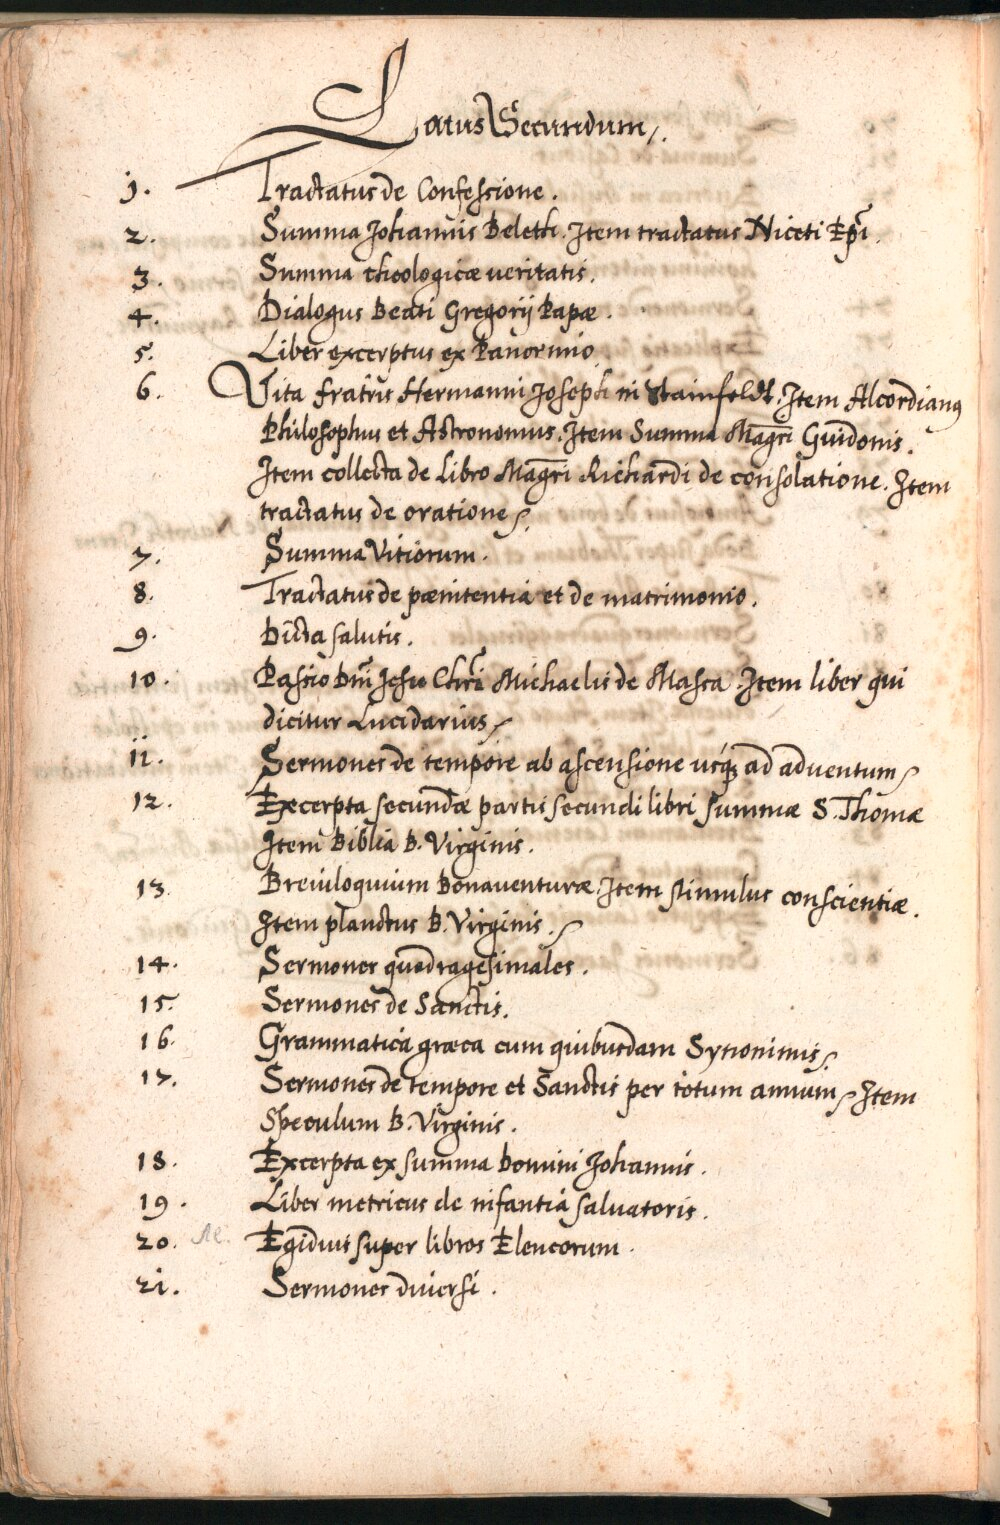 Latus Secundum.
1. Tractatus de Confessione.
2. Summa Johannis Beleth. Item tractatus Niceti Epi.
3. Summa theologicæ veritatis.
4. Dialogus Beati Gregorij Papæ.
5. Liber excerptus ex Panormio
6. Vita fratris Hermanni Joseph in Stainfeldt. Item Alcordianus
Philosophus et Astronomus. Item Summa Magri Guidonis.
Item collecta de Libro Magri Richardi de consolatione. Item
tractatus de oratione.
7. Summa Vitiorum.
8. Tractatus de pænitentia et de matrimonio.
9. Dicta salutis.
10. Passio Dni Jesu Chri Michaelis de Massa. Item liber qui
dicitur Lucidarius
11. Sermones de tempore ab ascensione usq; ad adventum
12. Excerpta secundæ partis secundi libri summæ S. Thomæ
Item Biblia B. Virginis.
13. Breviloquium Bonaventuræ. Item stimulus conscientiæ.
Item planctus B. Virginis.
14. Sermones quadragesimales.
15. Sermones de Sanctis.
16. Grammatica græca cum quibusdam Synonimis.
17. Sermones de tempore et Sanctis per totum annum. Item
Speculum B. Virginis.
18. Excerpta ex summa Domini Johannis.
19. Liber metricus de infantia salvatoris.
20. Egidius super libros Elencorum.
21. Sermones diversi.